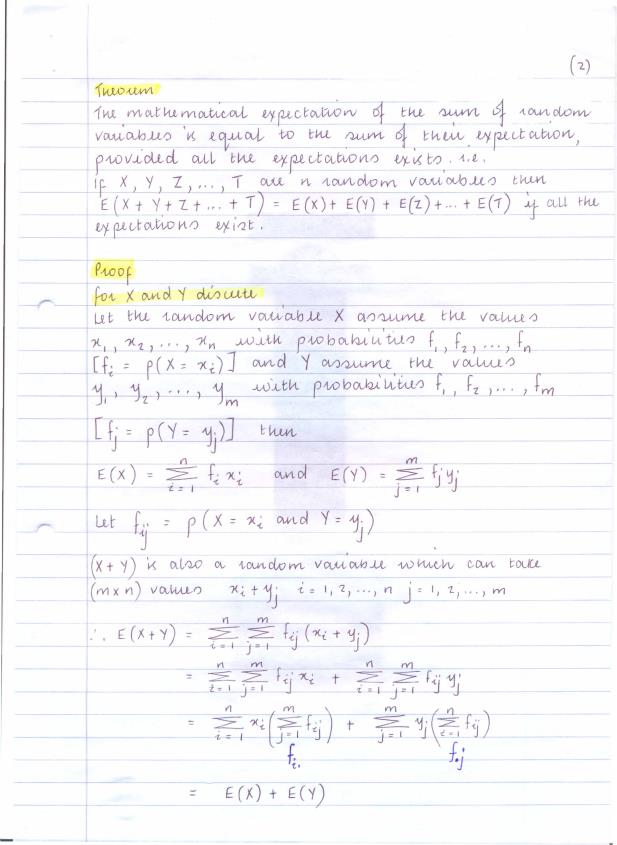 (2)
Theorem
The mathematical expectation of the sum of random
variables is equal to the sum of their expectation,
provided all the expectations exists. i.e.
If X, Y, Z, ..., T are n random variables then
E(X + Y + Z + ... + T) = E(X) + E(Y) + E(Z) + ... + E(T) if all the
expectations exist.
Proof
for X and Y discrete
Let the random variable X assume the values
x₁, x₂, ..., xₙ with probabilities f₁, f₂, ..., fₙ
[fᵢ = p(X = xᵢ)] and Y assume the values
y₁, y₂, ..., yₘ with probabilities f₁, f₂, ..., fₘ
[fⱼ = p(Y = yⱼ)] then
E(X) = ∑ᵢ₌₁ⁿ fᵢ xᵢ and E(Y) = ∑ⱼ₌₁ᵐ fⱼ yⱼ
Let fᵢⱼ = p(X = xᵢ and Y = yⱼ)
(X + Y) is also a random variable which can take
(m x n) values xᵢ + yⱼ i = 1, 2, ..., n j = 1, 2, ..., m
∴ E(X+Y) = ∑ᵢ₌₁ⁿ ∑ⱼ₌₁ᵐ fᵢⱼ (xᵢ + yⱼ)
= ∑ᵢ₌₁ⁿ ∑ⱼ₌₁ᵐ fᵢⱼ xᵢ + ∑ᵢ₌₁ⁿ ∑ⱼ₌₁ᵐ fᵢⱼ yⱼ
= ∑ᵢ₌₁ⁿ xᵢ (∑ⱼ₌₁ᵐ fᵢⱼ) + ∑ⱼ₌₁ᵐ yⱼ (∑ᵢ₌₁ⁿ fᵢⱼ)
fᵢ. f.ⱼ
= E(X) + E(Y)